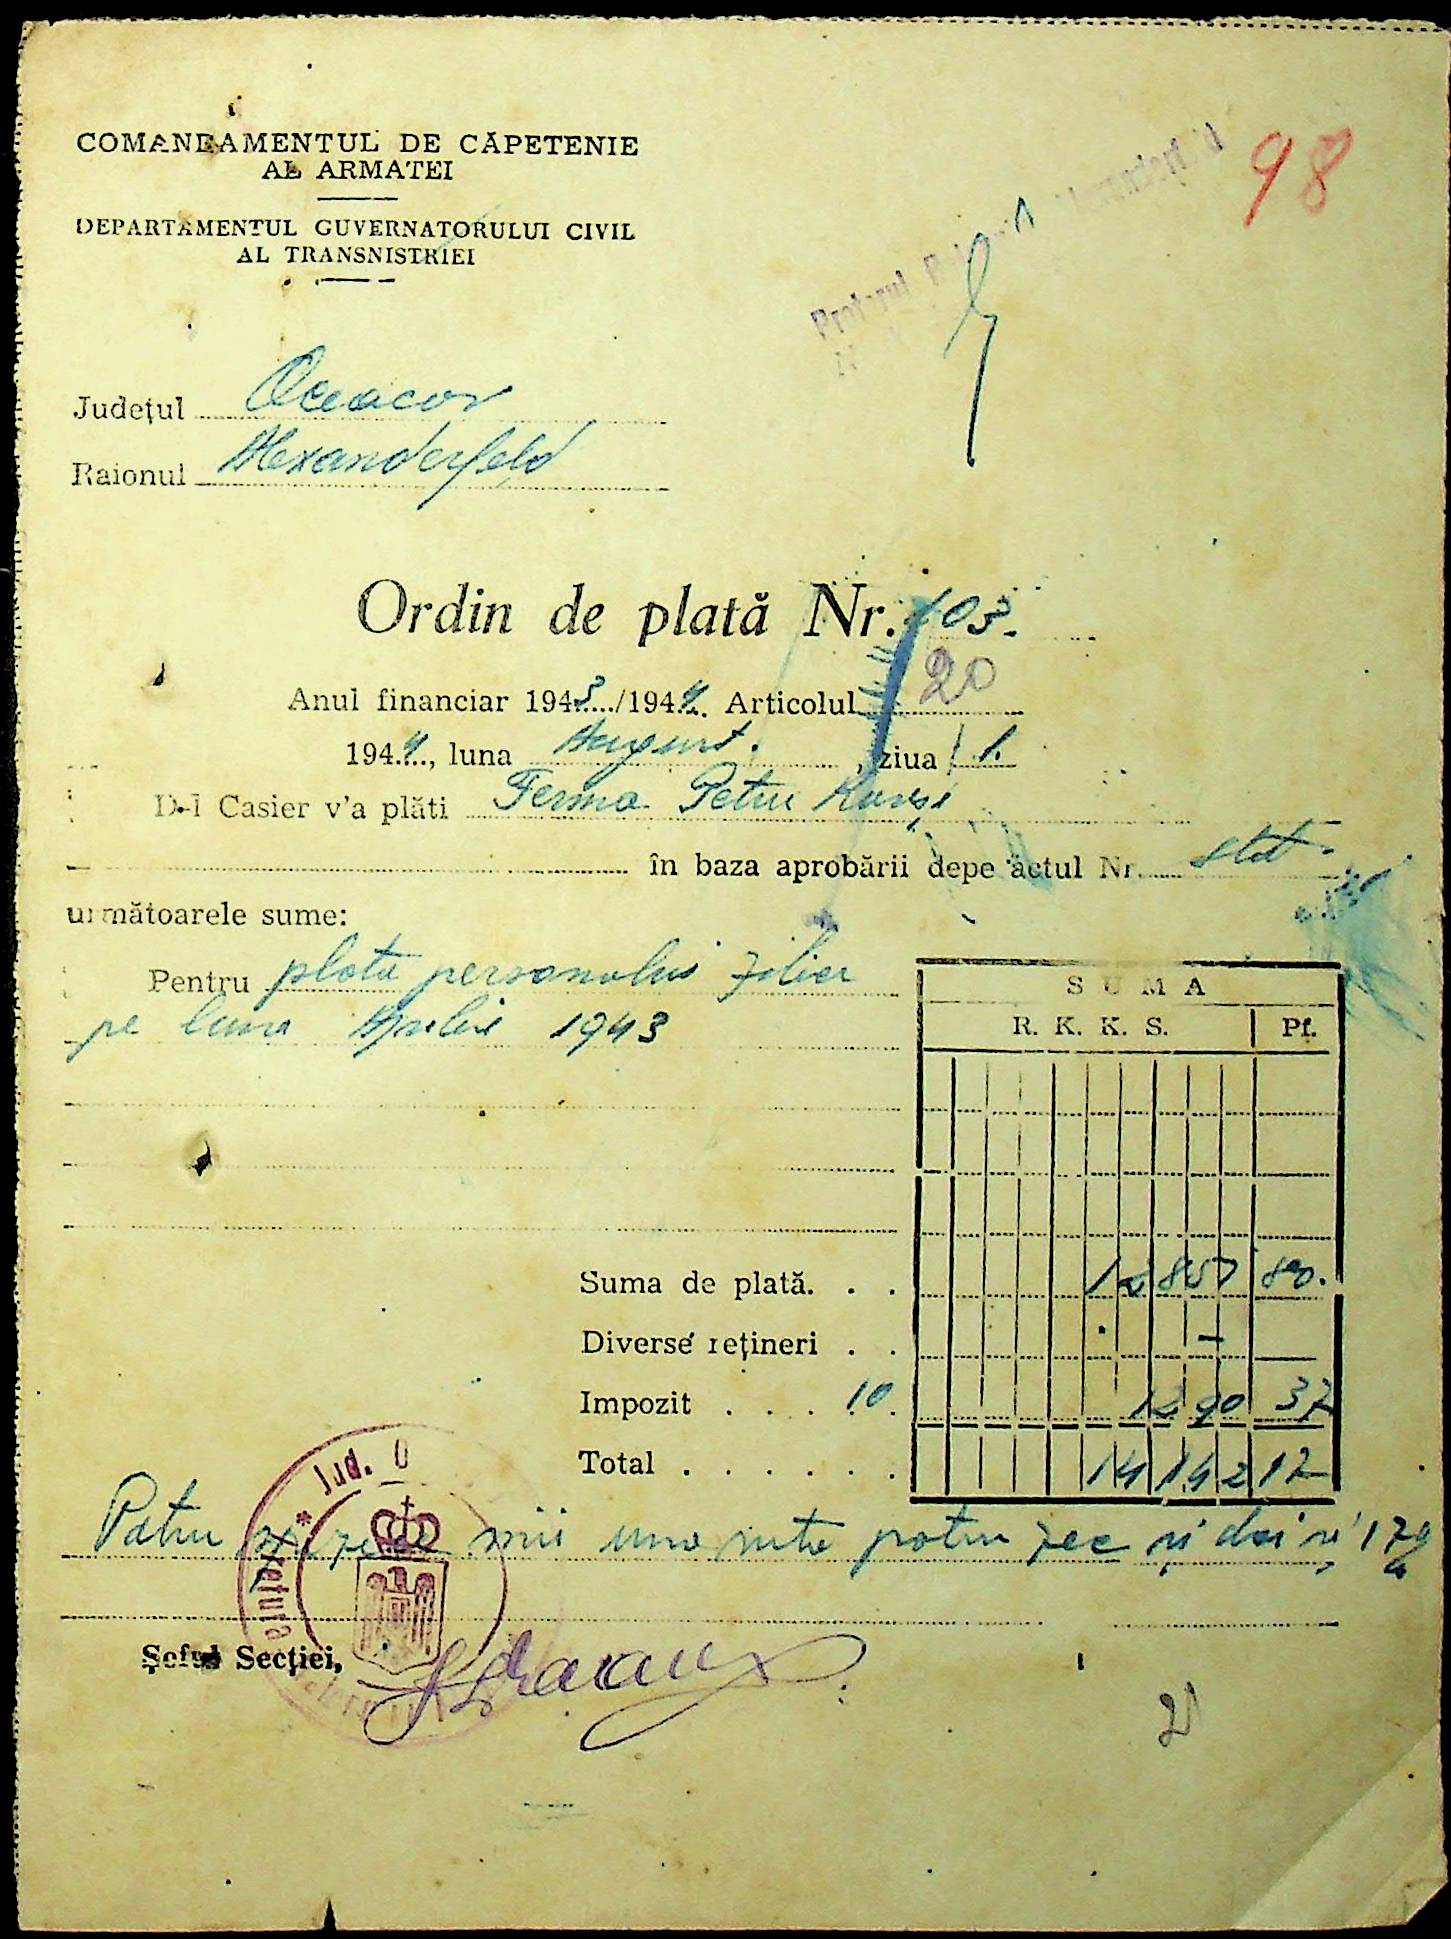 98
COMANDAMENTUL DE CĂPETENIE
AL ARMATEI
DEPARTAMENTUL GUVERNATORULUI CIVIL
AL TRANSNISTRIEI
Pretorul
Județul Oceacov
Raionul Alexanderfeld
Ordin de plată Nr. 103.
Anul financiar 1943/1944. Articolul 20
1944, luna August. , ziua 1.
D-l Casier v'a plăti Ferma Petru
în baza aprobării depe actul Nr. stat.
următoarele sume:
Pentru plata personalui zilier
pe luna Aprilie 1943
SUMA
R. K. K. S. Pf.
Suma de plată. . . 12857 80.
Diverse rețineri . . -
Impozit . . . 10. 1290 37
Total . . . . . . . 14142 17
Patru sprezece mii una suta patru zec și doi și 17
* Jud. O
Pretura
Șeful Secției,
21